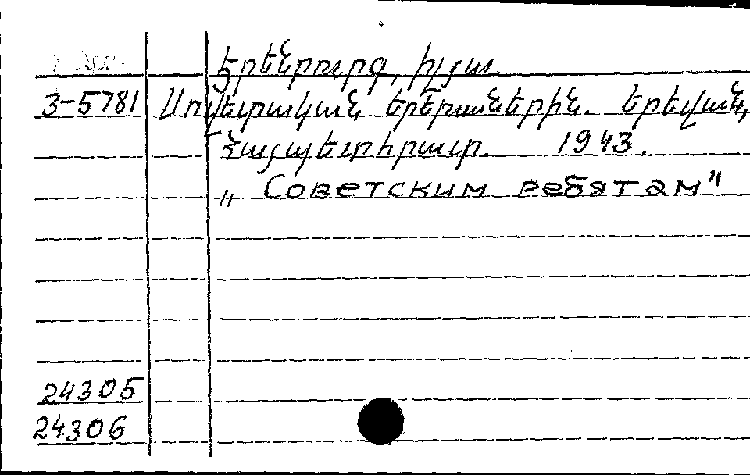 Էրենբուրգ, Իլյա
3-5781 Սովետական երեխաներին. Երևան,
Հայպետհրատ. 1943.
„Советским ребятам"
24305
24306